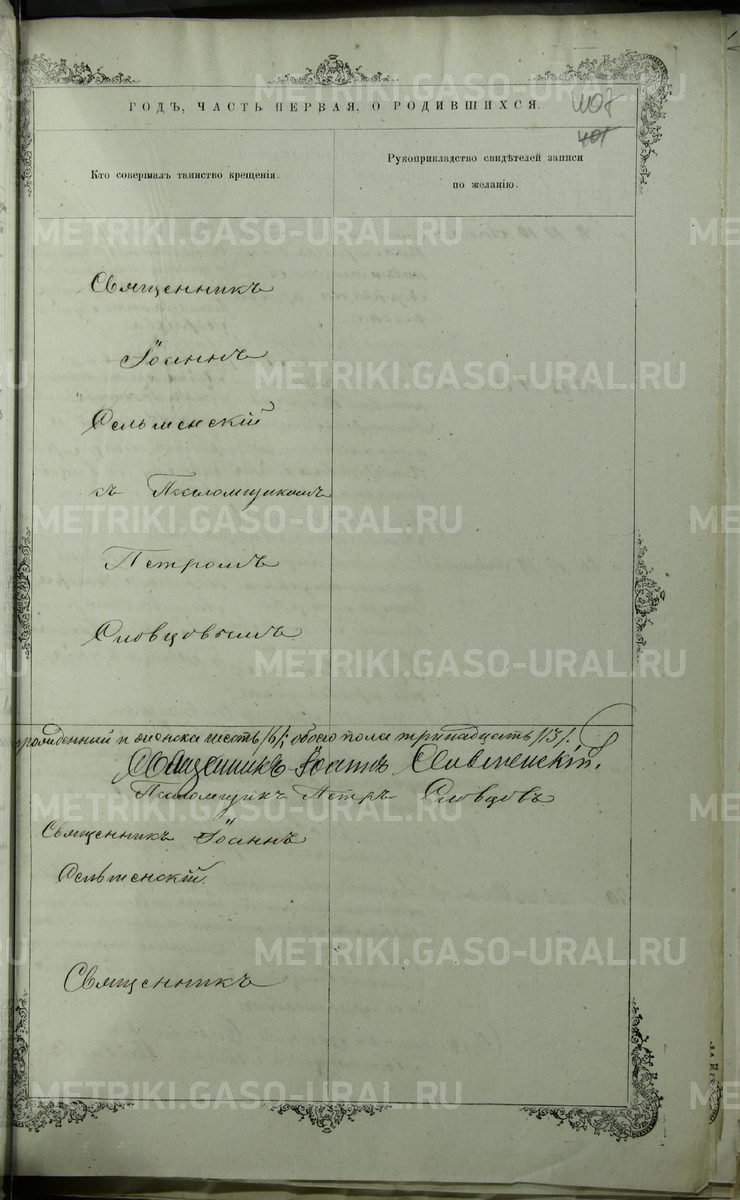 ГОДЪ, ЧАСТЬ ПЕРВАЯ, О РОДИВШИХСЯ.
407
Кто совершалъ таинство крещенія.
Рукоприкладство свидѣтелей записи
по желанію.
Священникъ
Іоаннъ
Сельменскій
съ Псаломщикомъ
Петромъ
Словцовымъ
женска шесть /6/; обоего пола тринадцать /13/.
Священникъ Іоаннъ Сельменскій.
Псаломщикъ Петръ Словцовъ
Священникъ Іоаннъ
Сельменскій.
Священникъ
METRIKI.GASO-URAL.RU